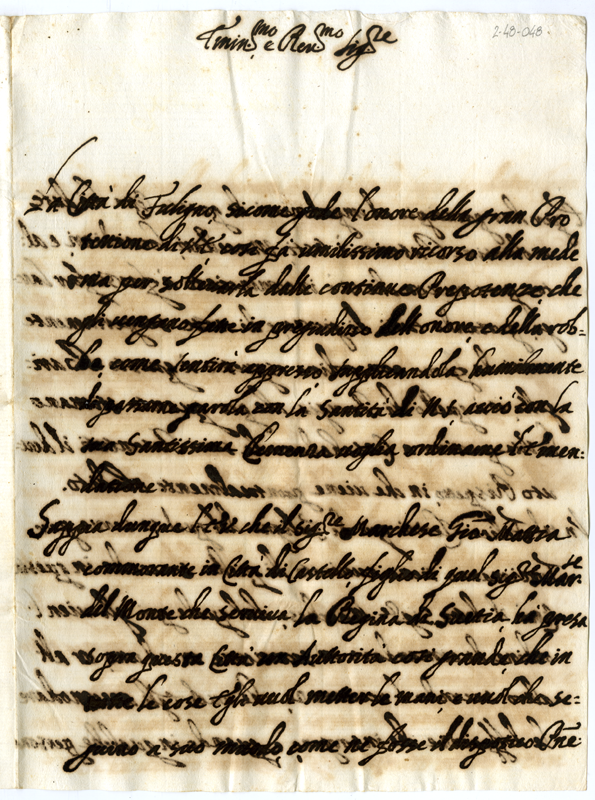 2-48-048.
Emin.mo e Rev.mo Sig.re
La Città di Fuligno, sicome gode l'onore della gran Pro
tezione di fà umilissimo ricorso alla mede
sima per solleuarla dalle continue Prepotenze che
gli vengano fatte in pregiudizio dell'onore e della rob=
ba, come sentirà appresso supplicandola humilmente
parola con la Santità di N.S. acciò con la
sua Santissima voglia ordinarne
Sappia dunque che il Sig.re Marchese Gio: Mattia
commorante in Città di Castello figlio di quel Sig.re Mar.se
del Monte che seruiua la Regina di Suetia ha presa
sopra questa Città una Autorità così grande, che in
tutte le cose Egli uuol metter le mani e uuol che se=
guino a suo modo come ne fosse il dispotico Pñe